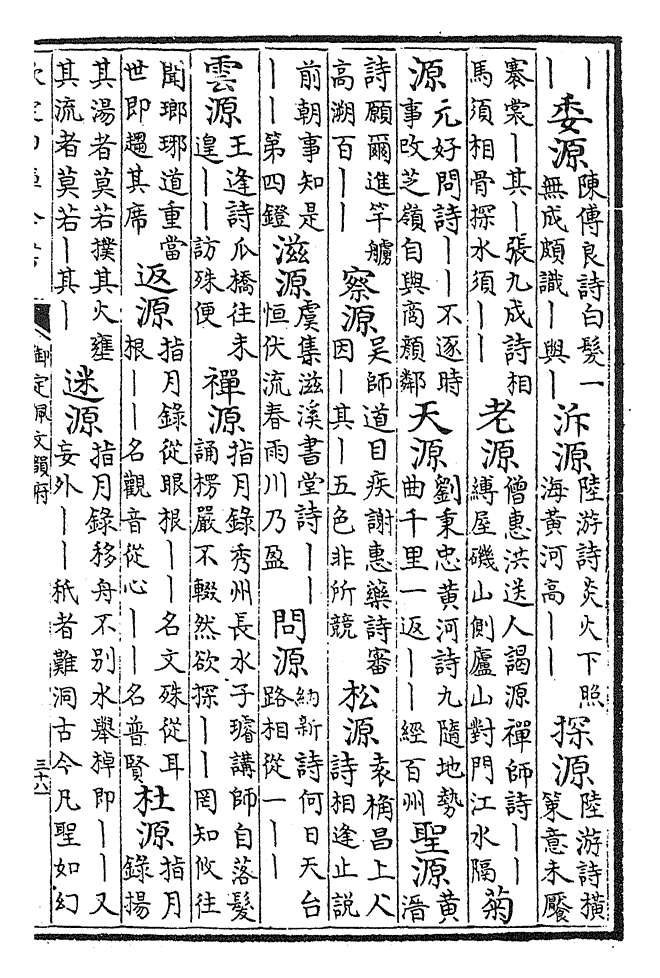 ｜｜委源陳傅良詩白髮一無成頗識｜與｜泝源陸游詩炎火下照海黃河高｜｜探源陸游詩橫策意未饜
褰裳｜其｜張九成詩相馬須相骨探水須｜｜老源僧惠洪送人謁源禪師詩｜｜縛屋磯山側廬山對門江水隔菊
源元好問詩｜｜不逐時事改芝嶺自與商顏鄰天源劉秉忠黃河詩九隨地勢曲千里一返｜｜經百州聖源黃溍
詩願爾進竿艣高溯百｜｜察源吳師道目疾謝惠藥詩審因｜其｜五色非所競松源袁桷昌上人詩相逢止説
前朝事知是｜｜第四鐙滋源虞集滋溪書堂詩｜｜恒伏流春雨川乃盈問源納新詩何日天台路相從一｜｜
雲源王逢詩瓜橋往未遑｜｜訪殊便禪源指月錄秀州長水子璿講師自落髮誦楞嚴不輟然欲探｜｜罔知攸往
聞瑯琊道重當世即趨其席返源指月錄從眼根｜｜名文殊從耳根｜｜名觀音從心｜｜名普賢杜源指月錄揚
其湯者莫若撲其火壅其流者莫若｜其｜迷源指月錄移舟不别水舉棹即｜｜又妄外｜｜秖者難洞古今凡聖如幻
御定佩文韻府
三十六